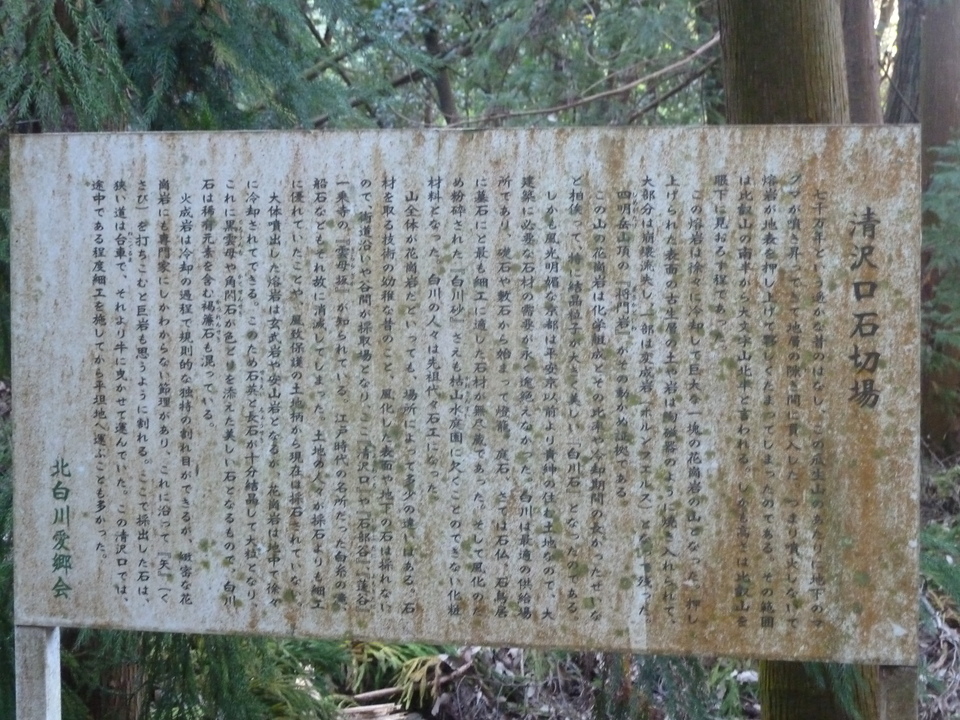 清沢口石切場
七千万年という遙かな昔のはなし、この瓜生山のあたりに地下のマ
グマが噴き昇ってきて地層の隙き間に貫入した。つまり噴火しないで
熔岩が地表を押し上げて
は比叡山の南半から大文字山北半と言われる。しかも高さは比叡山を
眼下に見おろす程であった。
この熔岩は徐々に冷却して巨大な一塊の花崗岩の山となった。押し
上げられた表面の古生層の土や岩は陶磁器のように焼き入れられて、
大部分は崩壊流失し一部は変成岩(ホルンフェルス)となって残った
四明岳山頂の『将門岩』がその動かぬ証拠である。
この山の花崗岩は化学組成とその比率や冷却期間の長かったせいな
ど相俟って、特に結晶粒子が大きく美しい「白川石」となったのである。
しかも風光明媚な京都は平安京以前より貴紳の住む土地なので、大
建築に必要な石材の需要が永く途絶えなかった。白川は最適の供給場
所であり、礎石や敷石から始まって燈籠、庭石、さては石仏、石鳥居
に墓石にと最も細工に適した石材が無尽蔵であった。そして風化のた
め粉砕された「白川砂」さえも枯山水庭園に欠くことのできない化粧
材料となった。白川の人々は先祖代々石工になった。
山全体が花崗岩だといっても、場所によって多少の違いはある。石
材を取る技術の幼稚な昔のこと、風化した表面や地下の石は採れない
ので、街道沿いや谷間が採取場となり、ここ「清沢口」や「石部谷」、蓮谷
一乗寺の『雲母坂』が知られている。江戸時代の名所だった白糸の滝、
船石などもそれ故に消滅してしまった。土地の人々が採石よりも細工
に優れていたことや、風致保護の土地柄から現在は採石されていない。
大体噴出した熔岩は玄武岩や安山岩となるが、花崗岩は地中で徐々
に冷却されてできる。このため石英と長石が十分結晶して大粒となり、
これに黒雲母や角閃石が色どりを添えた美しい石となるもので、白川
石は稀有元素を含む褐簾石も混っている。
火成岩は冷却の過程で規則的な独特の割れ目ができるが、緻密な花
崗岩にも専門家にしかわからない節理があり、これに沿って『矢』(く
さび)を打ちこむと巨岩も思うように割れる。ここで採出した石は、
狭い道は台車で、それより牛に曳かせて運んでいた。この清沢口では、
途中である程度細工を施してから平坦地へ運ぶことも多かった。
北白川愛郷会